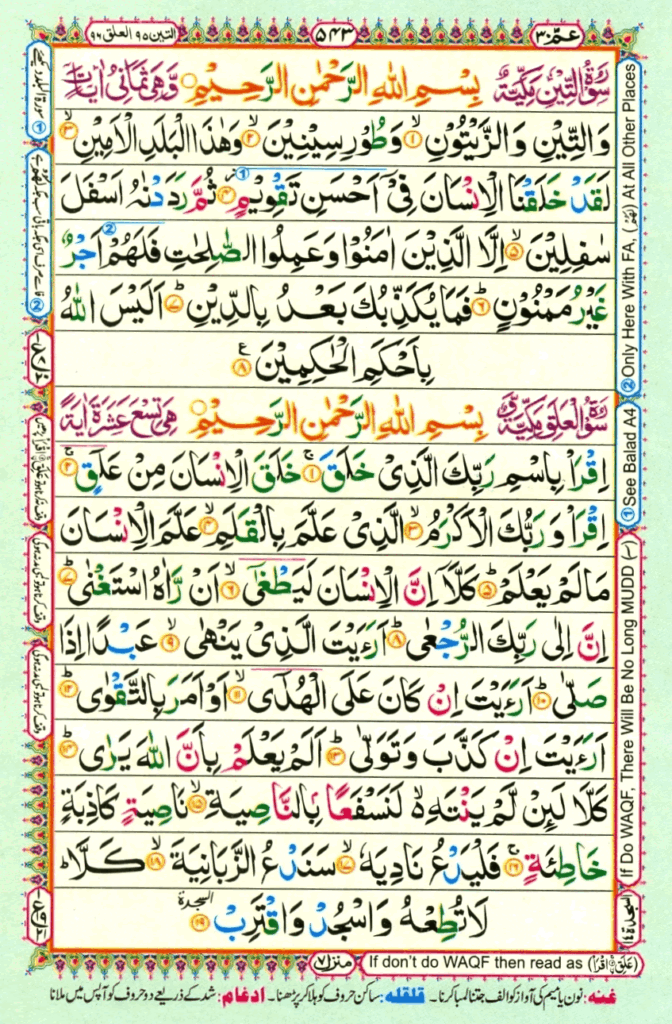 عـمّ ٣٠
٥٤٣
التين ٩٥ العلق ٩٦
سُوْرَةُ التِّيْنِ مَكِّيَّةٌ بِسْمِ اللهِ الرَّحْمٰنِ الرَّحِيْمِ وَّهِيَ ثَمَانِيْ اٰيَاتٍ
وَالتِّيْنِ وَالزَّيْتُوْنِ ۙ﴿١﴾ وَطُوْرِ سِيْنِيْنَ ۙ﴿٢﴾ وَهٰذَا الْبَلَدِ الْاَمِيْنِ ۙ﴿٣﴾
لَقَدْ خَلَقْنَا الْاِنْسَانَ فِيْٓ اَحْسَنِ تَقْوِيْمٍ ؗ﴿٤﴾ ① ثُمَّ رَدَدْنٰهُ اَسْفَلَ
سٰفِلِيْنَ ۙ﴿٥﴾ اِلَّا الَّذِيْنَ اٰمَنُوْا وَعَمِلُوا الصّٰلِحٰتِ فَلَهُمْ ② اَجْرٌ
غَيْرُ مَمْنُوْنٍ ؕ﴿٦﴾ فَمَا يُكَذِّبُكَ بَعْدُ بِالدِّيْنِ ؕ﴿٧﴾ اَلَيْسَ اللهُ
بِاَحْكَمِ الْحٰكِمِيْنَ ﴿٨﴾ ع
سُوْرَةُ الْعَلَقِ مَكِّيَّةٌ وَّ بِسْمِ اللهِ الرَّحْمٰنِ الرَّحِيْمِ هِيَ تِسْعَ عَشَرَةَ اٰيَةً
اِقْرَاْ بِاسْمِ رَبِّكَ الَّذِيْ خَلَقَ ۚ﴿١﴾ خَلَقَ الْاِنْسَانَ مِنْ عَلَقٍ ۚ﴿٢﴾
اِقْرَاْ وَرَبُّكَ الْاَكْرَمُ ۙ﴿٣﴾ الَّذِيْ عَلَّمَ بِالْقَلَمِ ۙ﴿٤﴾ عَلَّمَ الْاِنْسَانَ
مَا لَمْ يَعْلَمْ ؕ﴿٥﴾ كَلَّآ اِنَّ الْاِنْسَانَ لَيَطْغٰٓى ۙ﴿٦﴾ اَنْ رَّاٰهُ اسْتَغْنٰى ؕ﴿٧﴾
اِنَّ اِلٰى رَبِّكَ الرُّجْعٰى ؕ﴿٨﴾ اَرَءَيْتَ الَّذِيْ يَنْهٰى ۙ﴿٩﴾ عَبْدًا اِذَا
صَلّٰى ؕ﴿١٠﴾ اَرَءَيْتَ اِنْ كَانَ عَلَى الْهُدٰٓى ۙ﴿١١﴾ اَوْ اَمَرَ بِالتَّقْوٰى ؕ﴿١٢﴾
اَرَءَيْتَ اِنْ كَذَّبَ وَتَوَلّٰى ؕ﴿١٣﴾ اَلَمْ يَعْلَمْ بِاَنَّ اللهَ يَرٰى ؕ﴿١٤﴾
كَلَّا لَىِٕنْ لَّمْ يَنْتَهِ ۙ۬ لَنَسْفَعًۢا بِالنَّاصِيَةِ ۙ﴿١٥﴾ نَاصِيَةٍ كَاذِبَةٍ
خَاطِئَةٍ ۚ﴿١٦﴾ فَلْيَدْعُ نَادِيَهٗ ۙ﴿١٧﴾ سَنَدْعُ الزَّبَانِيَةَ ۙ﴿١٨﴾ كَلَّا ؕ
لَا تُطِعْهُ وَاسْجُدْ وَاقْتَرِبْ ۩﴿١٩﴾ السجدة
② Only Here With FA, (لَهُمْ) At All Other Places
① See Balad A4
If Do WAQF, There Will Be No Long MUDD (~)
منزل ٧
If don't do WAQF then read as (عَلَقِ ۣ اقْرَاْ)
غنه: نون یا میم کی آواز کو الف جتنا لمبا کرنا۔ قلقله: ساکن حروف کو ہلا کر پڑھنا۔ ادغام: شد کے ذریعے دو حروف کو آپس میں ملانا